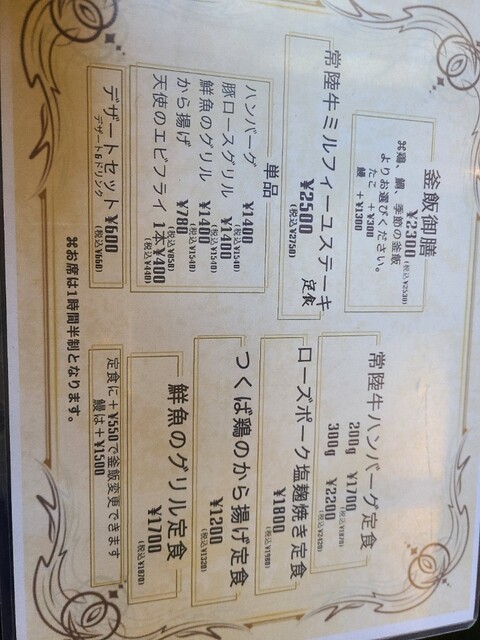 釜飯御膳
¥2300(税込¥2530)
⌘鶏、鯛、季節の釜飯
よりお選びください。
たこ ＋¥300
鰻 ＋¥1300
常陸牛ミルフィーユステーキ
定食
¥2500
(税込¥2750)
単品
ハンバーグ ¥1400(税込¥1540)
豚ロースグリル ¥1400(税込¥1540)
鮮魚のグリル ¥1400(税込¥1540)
から揚げ ¥780(税込¥858)
天使のエビフライ 1本¥400(税込¥440)
デザートセット ¥600
デザート&ドリンク (税込¥660)
常陸牛ハンバーグ定食
200g ¥1700(税込¥1870)
300g ¥2200(税込¥2420)
ローズポーク塩麹焼き定食
¥1800(税込¥1980)
つくば鶏のから揚げ定食
¥1200(税込¥1320)
鮮魚のグリル定食
¥1700(税込¥1870)
定食に＋¥550で釜飯変更できます
鰻は＋¥1500
⌘お席は1時間半制となります。